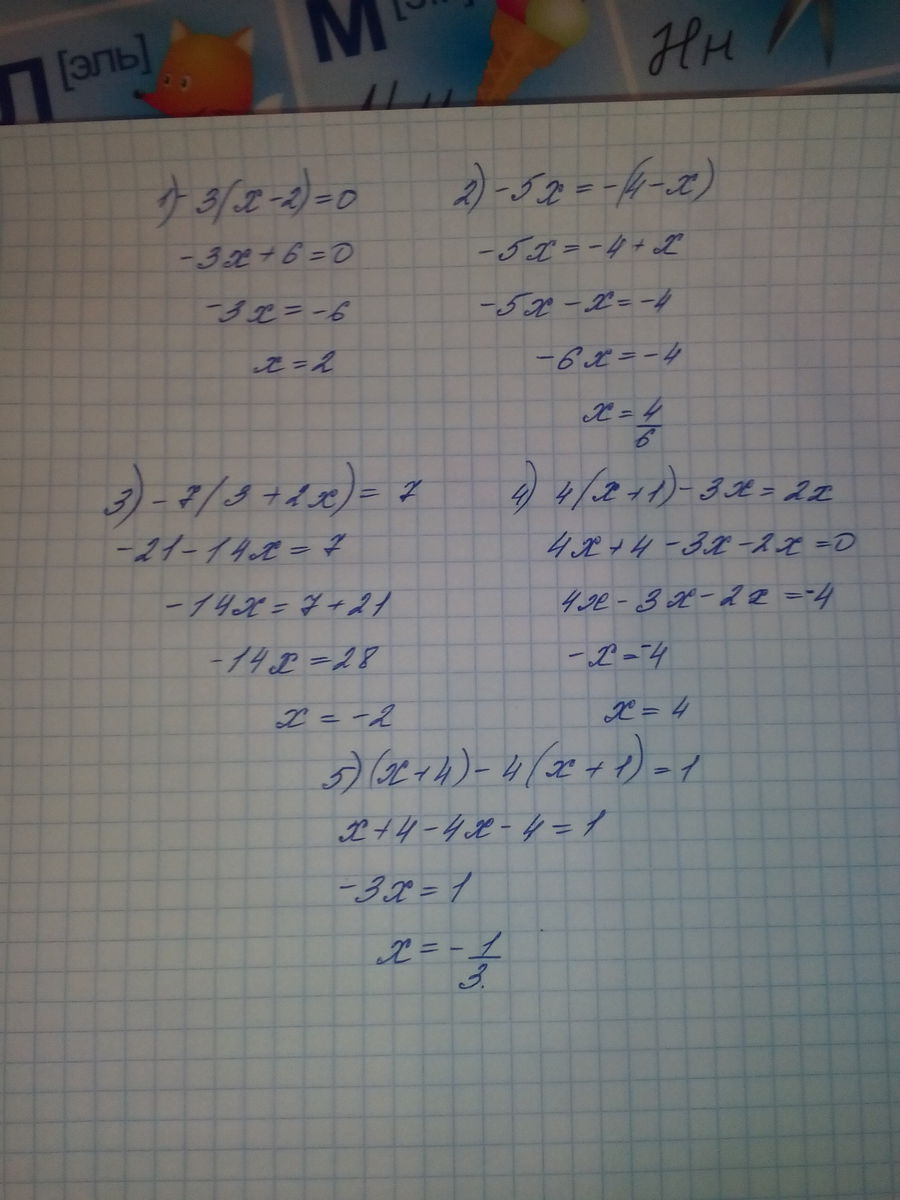 Л [эль]
М
Нн
1) -3(x-2)=0
-3x+6=0
-3x=-6
x=2
2) -5x=-(4-x)
-5x=-4+x
-5x-x=-4
-6x=-4
x=4/6
3) -7(3+2x)=7
-21-14x=7
-14x=7+21
-14x=28
x=-2
4) 4(x+1)-3x=2x
4x+4-3x-2x=0
4x-3x-2x=-4
-x=-4
x=4
5) (x+4)-4(x+1)=1
x+4-4x-4=1
-3x=1
x=-1/3.